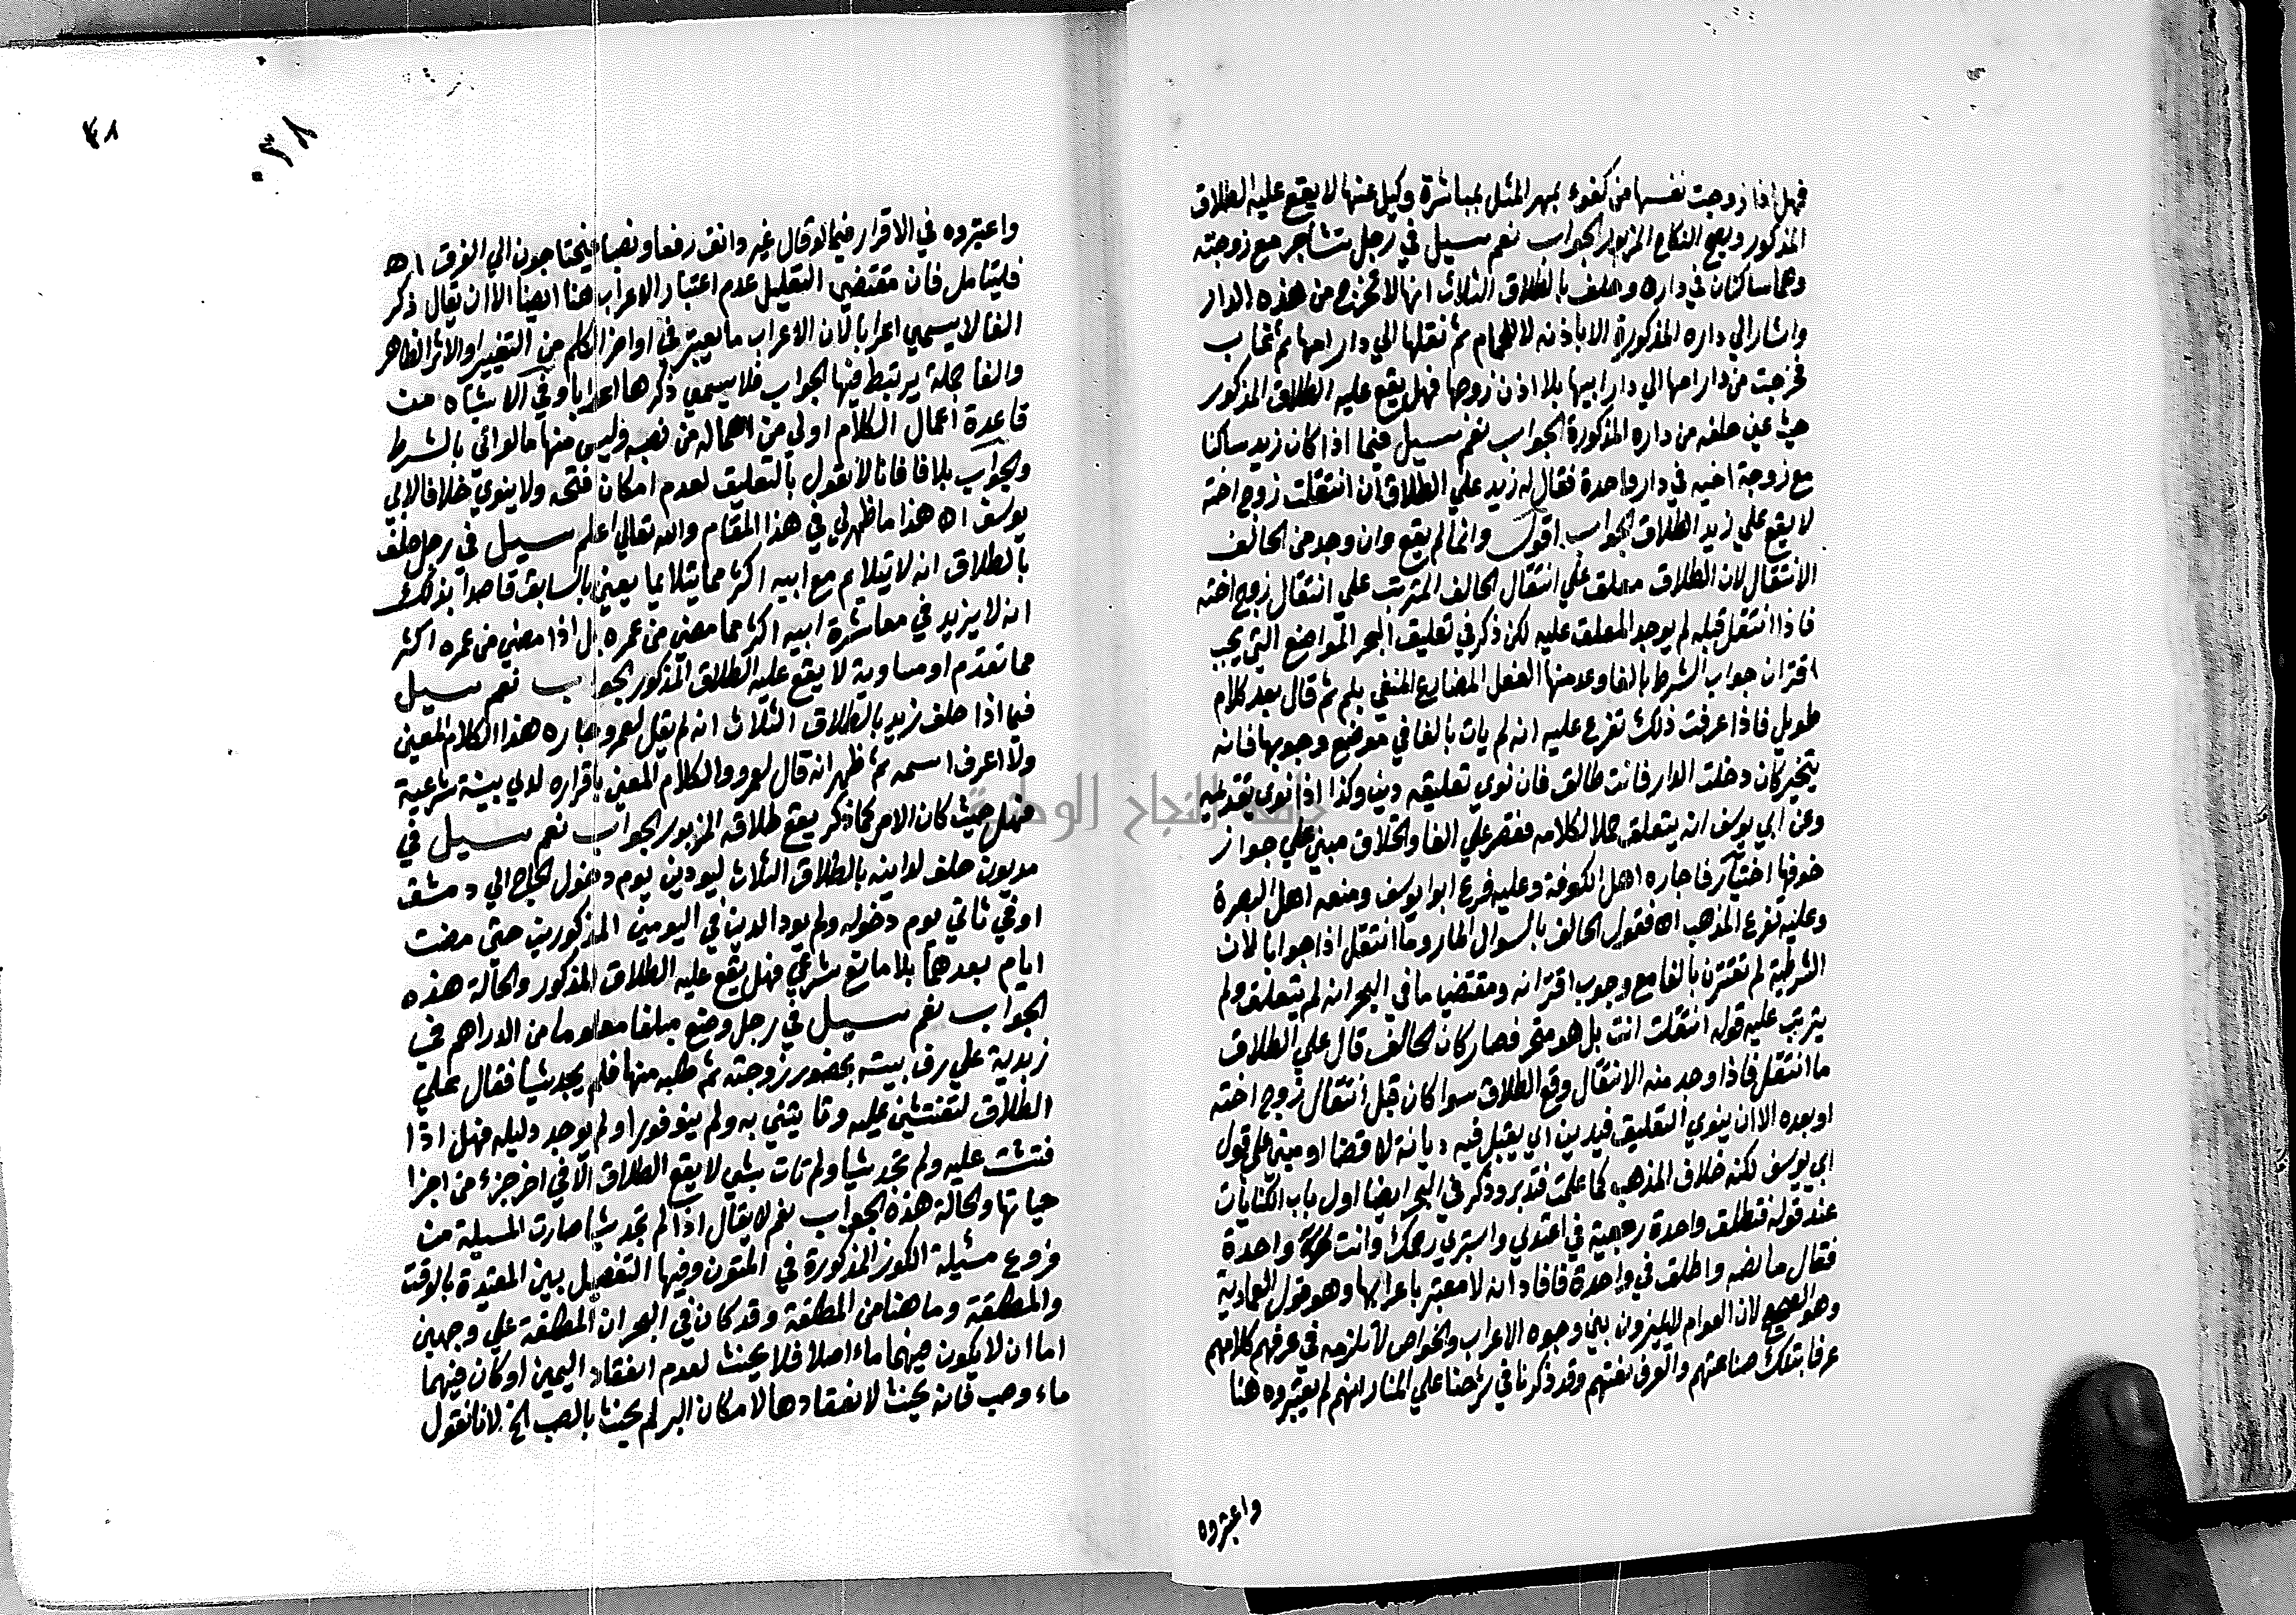 فهل اذا زوجت نفسها من كفوء بمهر المثل بمباشرة وكيل عنها لا يقع عليه الطلاق
المذكور ويصح النكاح المزبور الجواب نعم سيل في رجل تشاجر مع زوجته
وهما ساكنان في داره وحلف بالطلاق الثلاث انها لا تخرج من هذه الدار
واشار الي داره المذكورة الا باذنه لا للحمام ثم نقلها الي دار امها ثم تخارب
فخرجت من دار امها الي دار ابيها بلا اذن زوجها فهل يقع عليه الطلاق المذكور
حيث عين حلفه من داره المذكورة الجواب نعم سيل فيما اذا كان زيد ساكنا
مع زوجة اخيه في دار واحدة فقال له زيد علي الطلاق ان انتقلت زوج اخته
لا يقع علي زيد الطلاق الجواب اقول وانما لم يقع وان وجد من الحالف
الانتقال لان الطلاق معلق علي انتقال الحالف المترتب علي انتقال زوج اخته
فاذا انتقل قبله لم يوجد المعلق عليه لكن ذكر في تعليق البحر المواضع التي يجب
اقتران جواب الشرط بالفا وعد منها الفعل المضارع المنفي بلم ثم قال بعد كلام
طويل فاذا عرفت ذلك تفرع عليه انه لم يات بالفا في موضع وجوبها فانه
يتخير كان دخلت الدار فانت طالق فان نوي تعليقه دين وكذا اذا نوي تقديمه
وعن ابي يوسف انه يتعلق حملا لكلامه فقصر علي الفا والخلاف مبني علي جواز
حذفها اختيار فاجازه اهل الكوفة وعليه فرع ابو يوسف ومنعه اهل البصرة
وعليه تفرع المذهب اه فقول الحالف بالسوال المار وما انتقل اذا جوابا لان
الشرطية لم تقترن بالفا مع وجوب اقترانه ومقتضي ما في البحر انه لم يتعلق ولم
يترتب عليه قوله انتقلت انت بل هو متخر فصار كان الحالف قال علي الطلاق
ما انتقل فاذا وجد منه الانتقال وقع الطلاق سوا كان قبل انتقال زوج اخته
او بعده الا ان ينوي التعليق فيدين اي يقبل فيه ديانة لا قضا او مبني علي قول
ابي يوسف لكنه خلاف المذهب كما علمت فتدبر وذكر في البحر ايضا اول باب الكنايات
عند قوله فتطلق واحدة رجعية في اعتدي واستبري رحمك وانت واحدة
فقال ما نصه واطلق في واحدة فافاد انه لا معتبر باعرابها وهو قول العامة
وهو الصحيح لان العوام لا يميزون بين وجوه الاعراب والخواص لا تلتزمه في عرفهم كلامهم
عرفا بتلك صناعتهم والعرف لغتهم وقد ذكرنا في شرحنا علي المنار انهم لم يعتبروه هنا
واعتبروه
٠٣٨
واعتبروه في الاقرار فيما لو قال غير دانق رفعا ونصبا فيحتاجون الي الفرق اه
فليتامل فان مقتضي التعليل عدم اعتبار الاعراب هنا ايضا الا ان يقال ذكر
الفا لا يسمي اعرابا لان الاعراب ما يعتبر في اواخر الكلم من التغيير او الاثر الظاهر
والفا جملة يرتبط فيها الجواب فلا يسمي ذكرها اعرابا وفي الاشباه من
قاعدة اعمال الكلام اولي من اهماله من نصه وليس منها ما لو اتي بالشرط
والجواب بلا فا فانا لا نقول بالتعليق لعدم امكان فتحه ولا ينوي خلافا لابي
يوسف اه هذا ما ظهر لي في هذا المقام والله تعالي اعلم سيل في رجل حلف
بالطلاق انه لا يتلايم مع ابيه اكثر مما يتلايما يعني بالسابق قاصدا بذلك
انه لا يزيد في معاشرة ابيه اكثر مما مضي من عمره بل اذا مضي من عمره اكثر
مما تقدم او مساوية لا يقع عليه الطلاق المذكور الجواب نعم سيل
فيما اذا حلف زيد بالطلاق الثلاث انه لم يقل لعمرو جاره هذا الكلام المعين
ولا اعرف اسمه ثم ظهر انه قال لعمرو الكلام المعين باقراره لدي بينة شرعية
فهل حيث كان الامر كما ذكر يقع طلاقه المزبور الجواب نعم سيل في
مديون حلف لداينه بالطلاق الثلاث ليودين يوم دخول الحاج الي دمشق
او في ثاني يوم دخوله ولم يود الدين في اليومين المذكورين حتي مضت
ايام بعدهما بلا مانع شرعي فهل يقع عليه الطلاق المذكور والحالة هذه
الجواب نعم سيل في رجل وضع مبلغا معلوما من الدراهم في
زبدية علي رف بيته بحضور زوجته ثم طلبه منها فلم يجد شيا فقال علي
الطلاق لتفتشين عليه وتا يتني به ولم ينو فورا ولم يوجد دليله فهل اذا
فتشت عليه ولم تجد شيا ولم تات بشي لا يقع الطلاق الا في اخر جزء من اجزا
حياتها والحالة هذه الجواب نعم لا يقال اذا لم تجد شيا صارت المسيلة من
فروع مسئيلة الكوز المذكورة في المتون وفيها التفصيل بين المقيدة بالوقت
والمطلقة وما هنا من المطلقة وقد كان في البحر ان المطلقة علي وجهين
اما ان لا يكون فيهما ماء اصلا فلا يحنث لعدم انعقاد اليمين او كان فيهما
ماء وصب فانه يحنث لانعقادها لامكان البر لم يحنث بالصب الخ لانا نقول